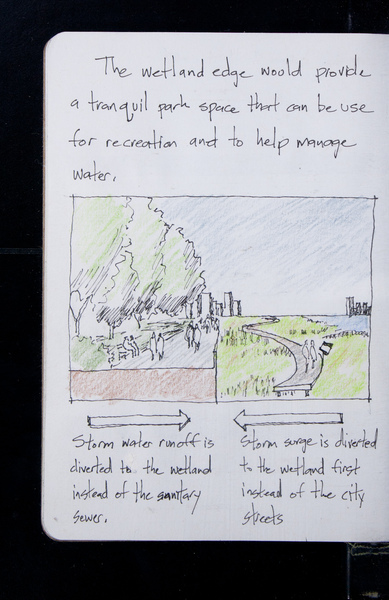 The wetland edge would provide
a tranquil park space that can be use
for recreation and to help manage
water.
Storm water runoff is
diverted to the wetland
instead of the sanitary
sewer.
Storm surge is diverted
to the wetland first
instead of the city
streets